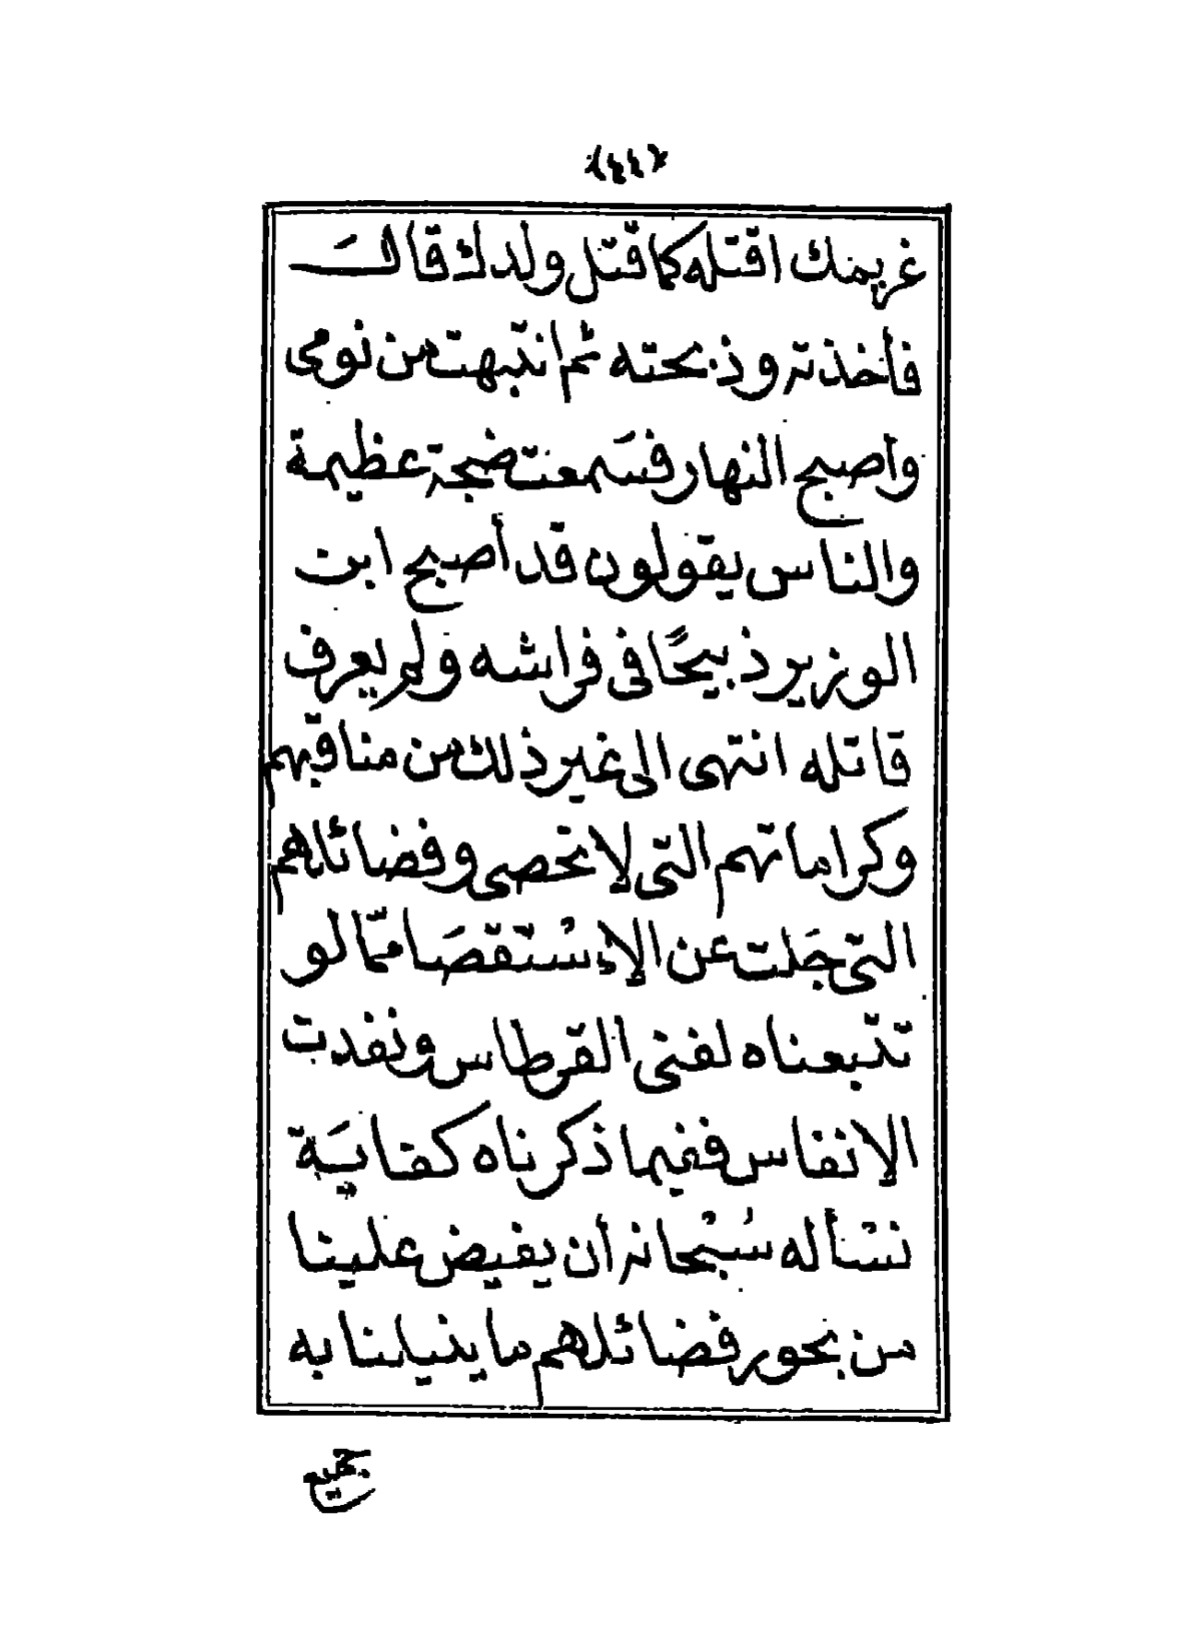 غريمك اقتله كما قتل ولدك قال
فأخذته وذبحته ثم انتبهت من نومى
واصبح النهار فسَمعت ضجة عظيمة
والناس يقولون قد أصبح ابن
الوزير ذبيحًا فى فراشه ولم يعرف
قاتله انتهى الى غير ذلك من مناقبهم
وكراماتهم التى لا تحصى وفضائلهم
التى جَلت عن الإسْتقصَا ممّا لو
تتّبعناه لفنى القرطاس ونفدت
الانفاس ففيما ذكرناه كفايَة
نسْأله سُبْحانه أن يفيض علينا
من بحور فضائلهم ما ينيلنا به
جميع